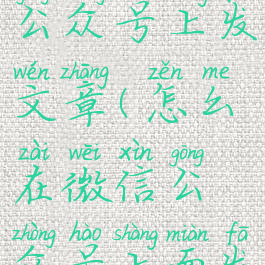 公众号上发
wén zhāng zěn me
文章(怎么
zài wēi xìn gōng
在微信公
zhòng hào shàng miàn fā
众号上面发